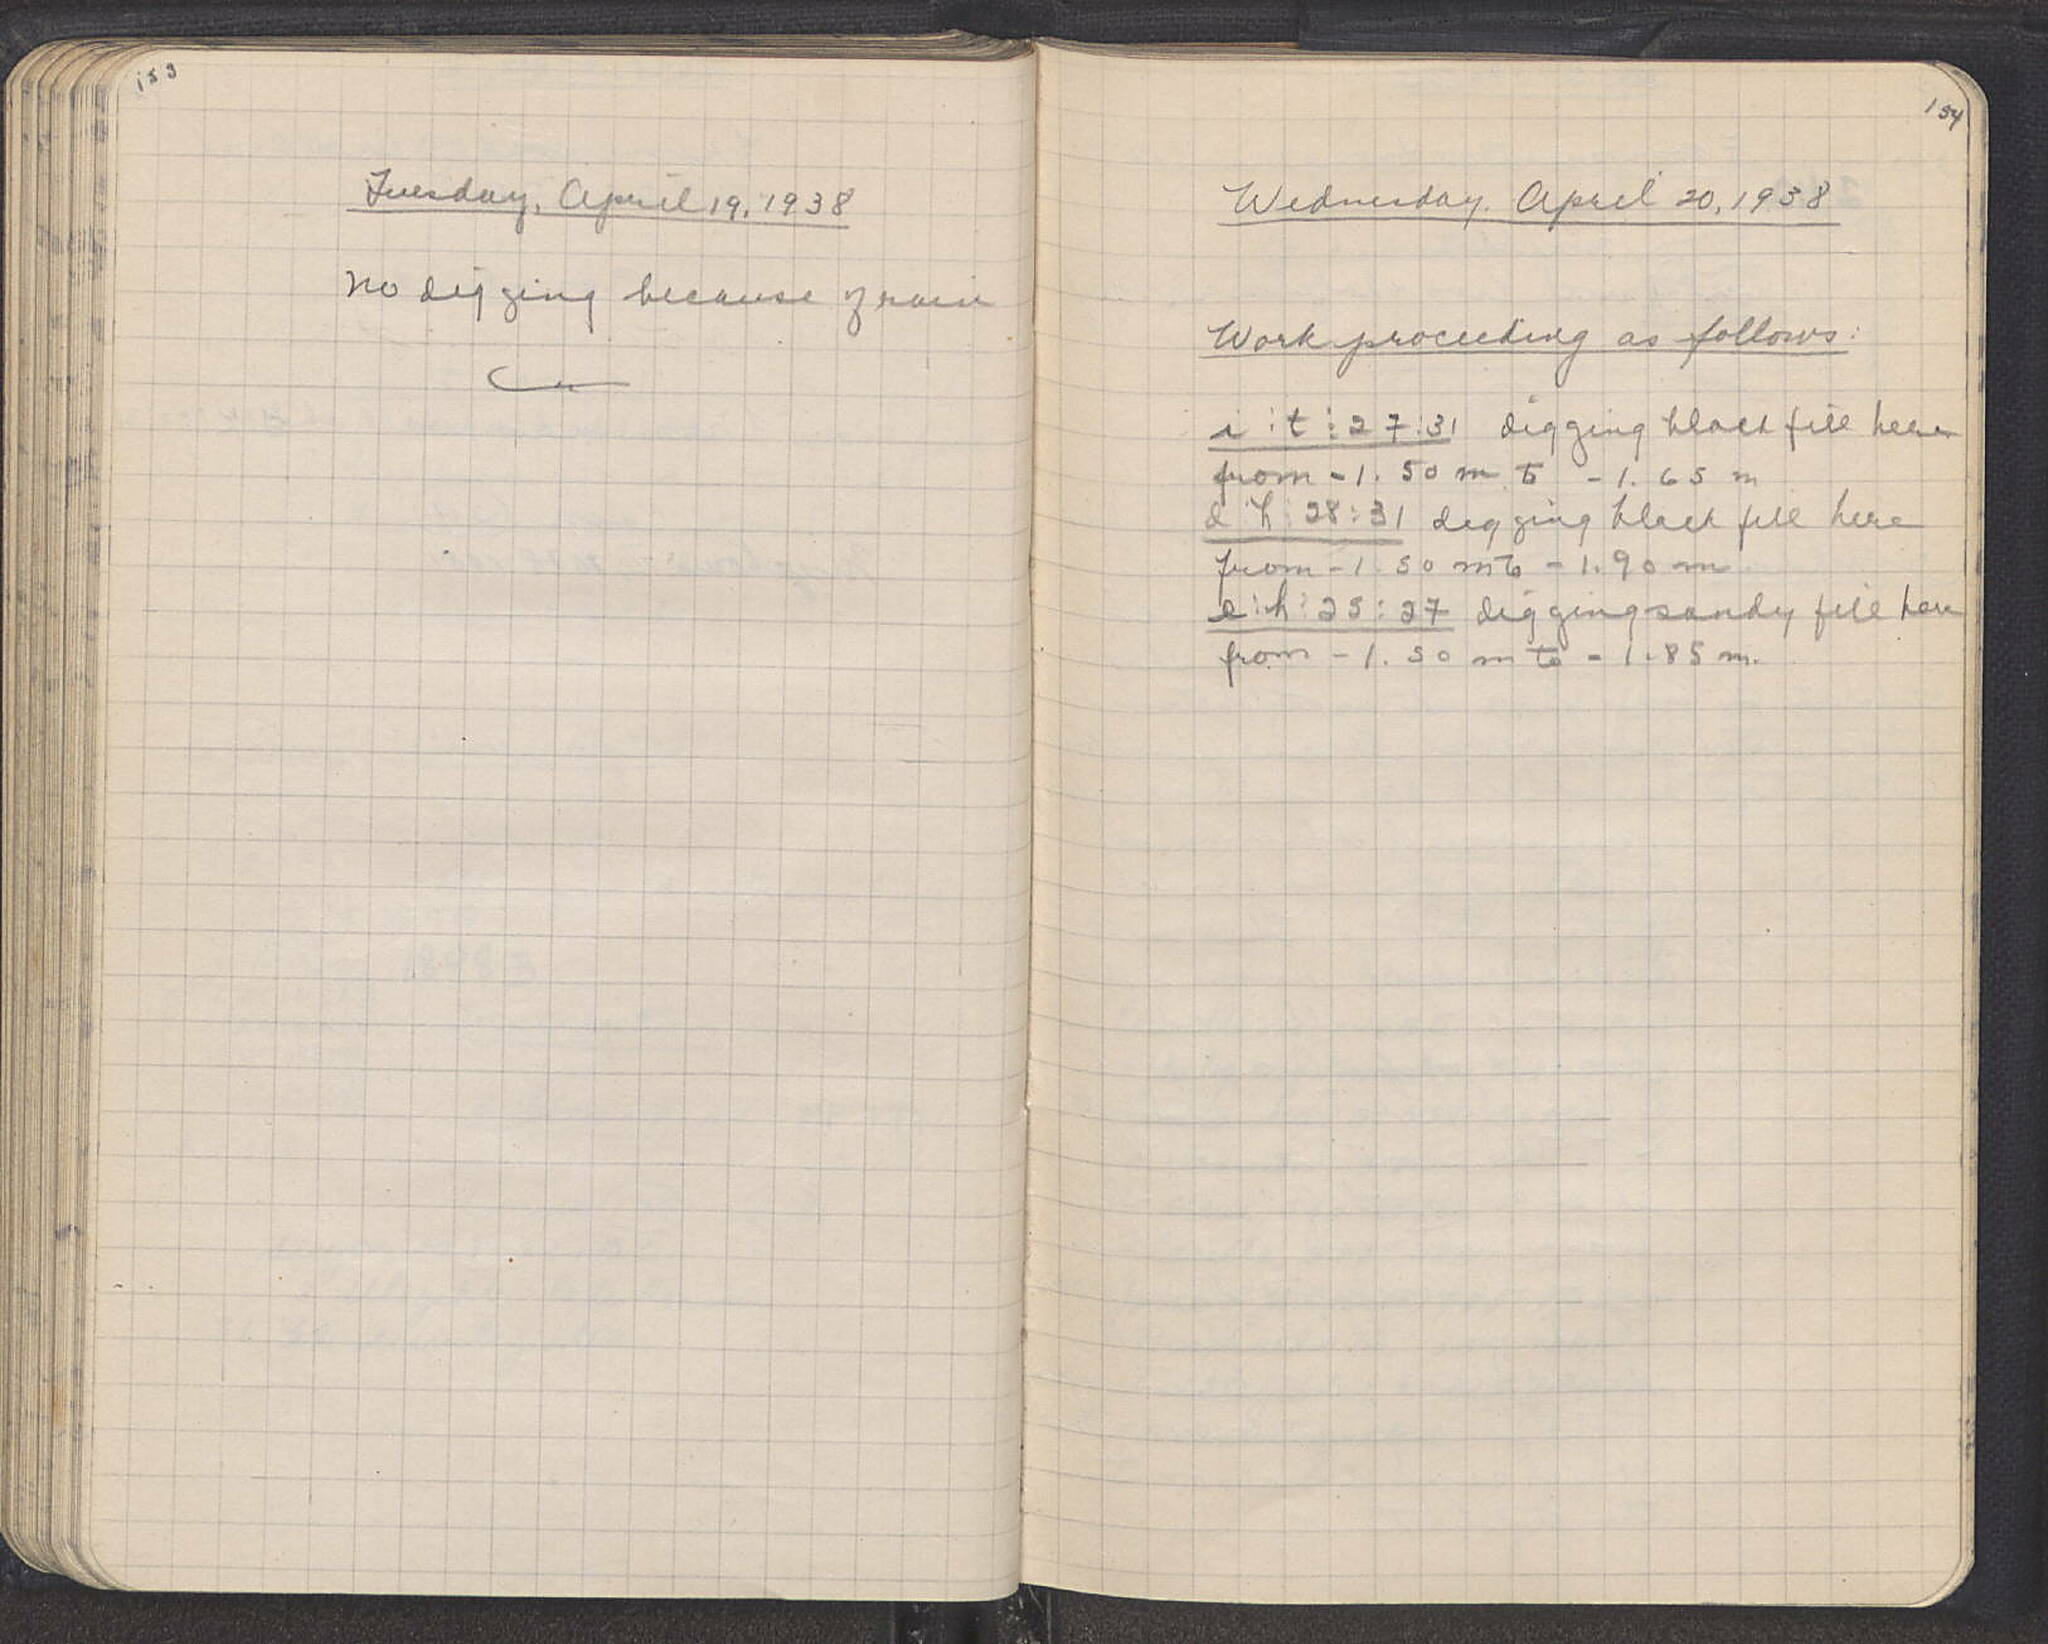 153
Tuesday, April 19, 1938
No digging because of rain
154
Wednesday. April 20, 1938
Work proceeding as follows:
i:t:27:31 digging black fill here
from -1.50 m to -1.65 m
h:28:31 digging black fill here
from -1.50 m to -1.90 m
e:h:25:27 digging sandy fill here
from -1.50 m to -1.85 m.